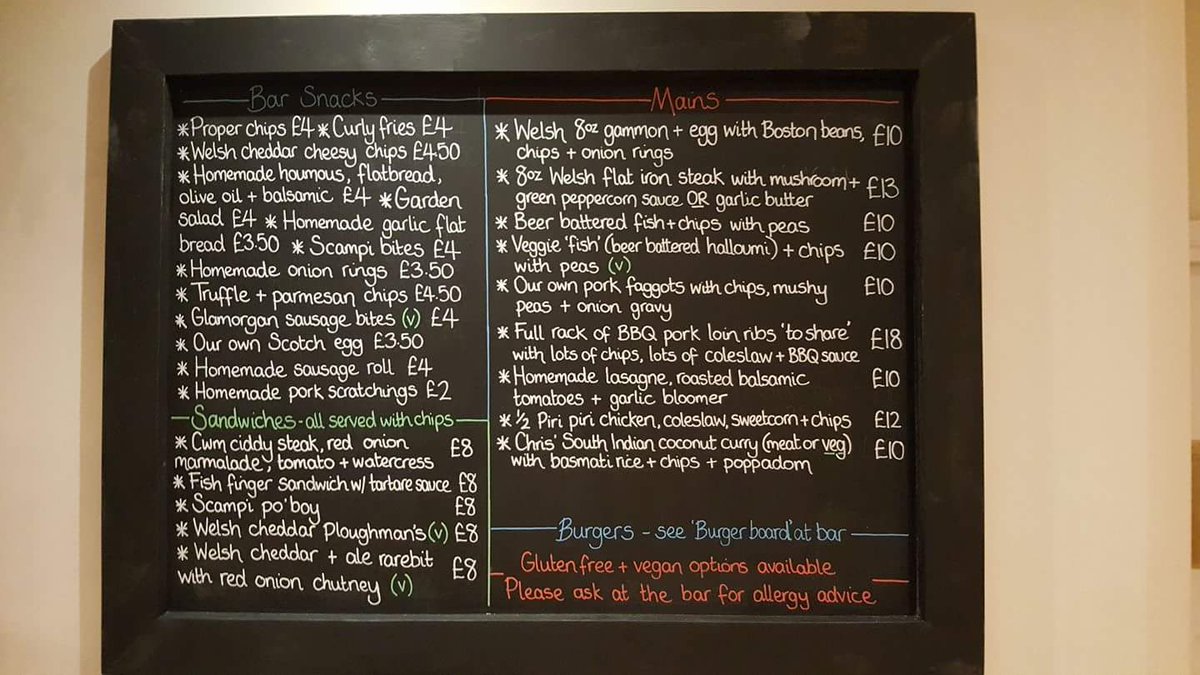 Bar Snacks
*Proper chips £4 *Curly fries £4
*Welsh cheddar cheesy chips £4.50
*Homemade houmous, flatbread,
olive oil + balsamic £4 *Garden
salad £4 *Homemade garlic flat
bread £3.50 *Scampi bites £4
*Homemade onion rings £3.50
*Truffle + parmesan chips £4.50
*Glamorgan sausage bites (v) £4
*Our own Scotch egg £3.50
*Homemade sausage roll £4
*Homemade pork scratchings £2
Sandwiches - all served with chips
*Cwm ciddy steak, red onion £8
marmalade, tomato + watercress
*Fish finger sandwich w/ tartare sauce £8
*Scampi po'boy £8
*Welsh cheddar Ploughman's (v) £8
*Welsh cheddar + ale rarebit £8
with red onion chutney (v)
Mains
*Welsh 8oz gammon + egg with Boston beans, £10
chips + onion rings
*8oz Welsh flat iron steak with mushroom + £13
green peppercorn sauce OR garlic butter
*Beer battered fish + chips with peas £10
*Veggie 'fish' (beer battered halloumi) + chips £10
with peas (v)
*Our own pork faggots with chips, mushy £10
peas + onion gravy
*Full rack of BBQ pork loin ribs 'to share' £18
with lots of chips, lots of coleslaw + BBQ sauce
*Homemade lasagne, roasted balsamic £10
tomatoes + garlic bloomer
*½ Piri piri chicken, coleslaw, sweetcorn + chips £12
*Chris' South Indian coconut curry (meat or veg) £10
with basmati rice + chips + poppadom
Burgers - see 'Burger board' at bar
Gluten free + vegan options available
Please ask at the bar for allergy advice